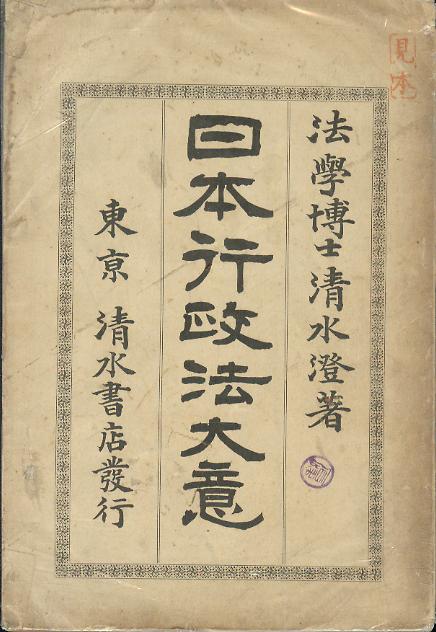 見本
法學博士清水澄著
日本行政法大意
東京 清水書店發行